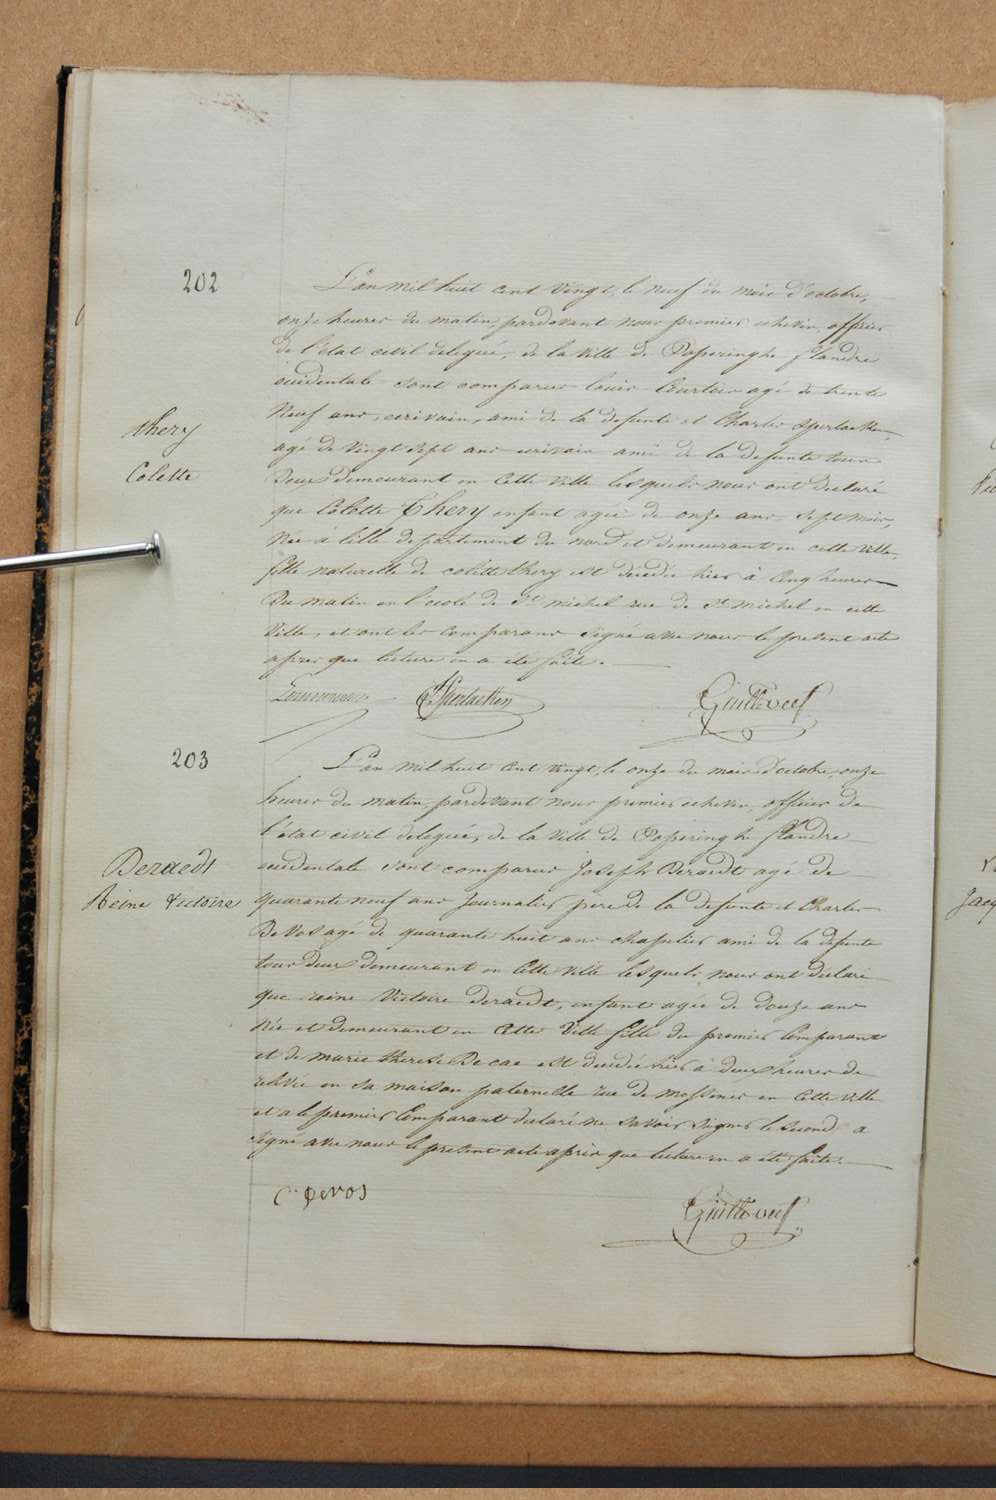 202
L'an mil huit cent vingt, le neuf du mois d'octobre,
onze heures du matin, pardevant nous premier echevin, officier
de l'état civil delegué, de la ville de Poperinghe flandre
occidentale sont comparus Louis Courtois agé de trente
Neuf ans, ecrivain, ami de la defunte et Charles Sperlaeken,
agé de vingt sept ans ecrivain ami de la defunte tous
Deux demeurant en Cette ville lesquels nous ont declaré
thery
Colette
que Colette Thery enfant agée de onze ans sept mois,
Née a lille departement du nord et demeurant en cette ville,
fille naturelle de colette thery est décédée hier à Cinq heures
Du matin en l'ecole de St michel rue de St Michel en cette
Ville, et ont les comparans signé avec nous le present acte
apres que lecture en a été faite.
Sperlaeken
203
L'an mil huit cent vingt, le onze du mois d'octobre, onze
heures du matin, pardevant nous premier echevin, officier de
l'état civil delegué, de la ville de Poperinghe flandre
occidentale sont comparus Joseph Deraedt agé de
Deraedt
Reine Victoire
quarante neuf ans Journalier pere de la defunte et Charles
De Vos agé de quarante huit ans chapelier ami de la defunte
tous deux demeurant en Cette ville lesquels nous ont declaré
que reine Victoire Deraedt, enfant agée de douze ans
Née et demeurant en Cette Ville fille du premier Comparant
et de marie therese De cae est decedée hier à deux heures de
relevée en sa maison paternelle rue de messines en Cette ville
et a le premier Comparant declaré ne savoir signer le second a
signé avec nous le present acte après que lecture en a été faite.
C. Devos